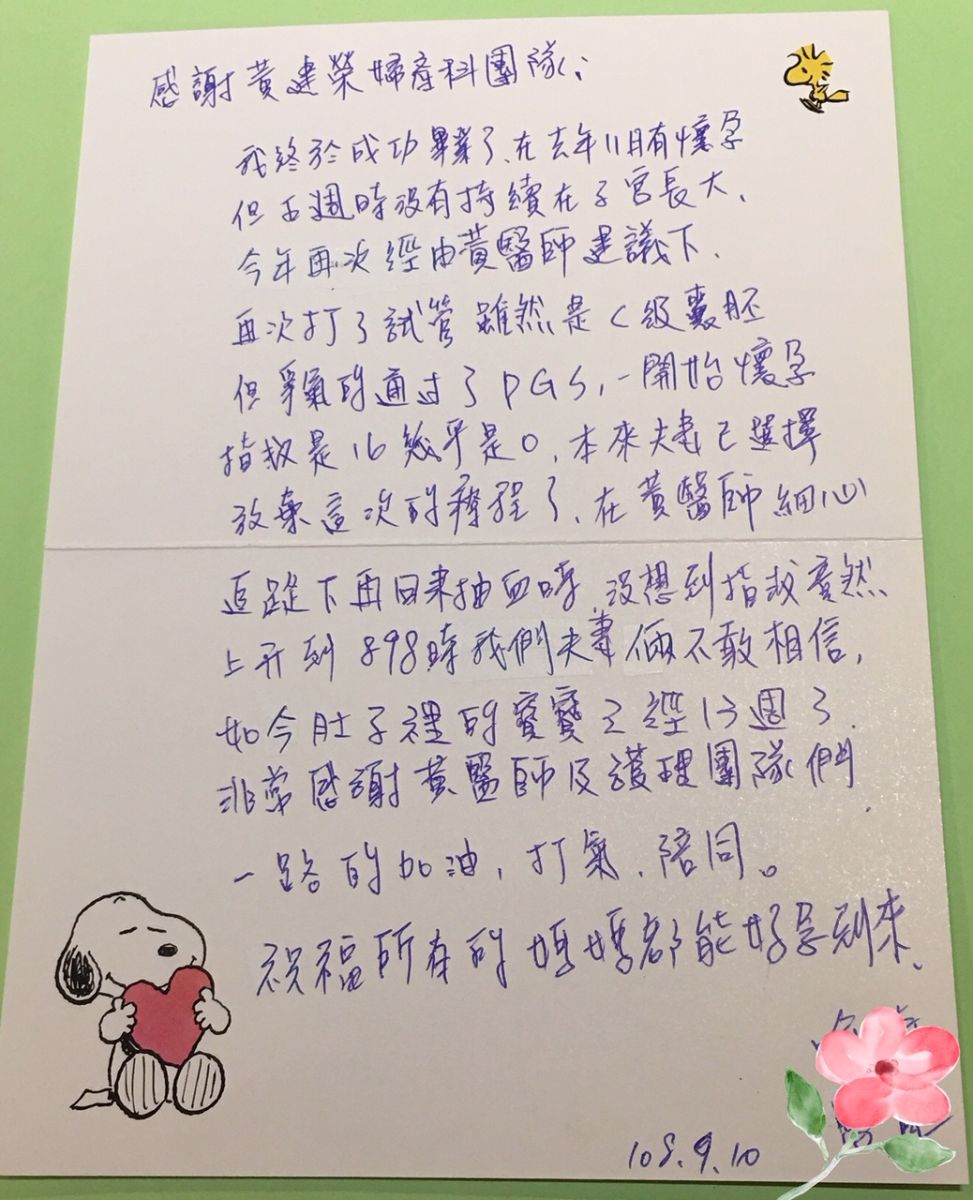 感謝黃建榮婦產科團隊：
我終於成功畢業了、在去年11月有懷孕
但五週時沒有持續在子宮長大、
今年再次經由黃醫師建議下、
再次打了試管 雖然是C級囊胚
但爭氣的通过了PGS,一開始懷孕
指数是16幾乎是0,本來夫妻已選擇
放棄這次的療程了、在黃醫師細心
追蹤下再回來抽血時、沒想到指数竟然
上升到898時我們夫妻倆不敢相信,
如今肚子裡的寶寶已經13週了.
非常感謝黃醫師及護理團隊們.
一路的加油,打氣、陪同。
祝福所有的媽媽都能好孕到來、
108.9.10